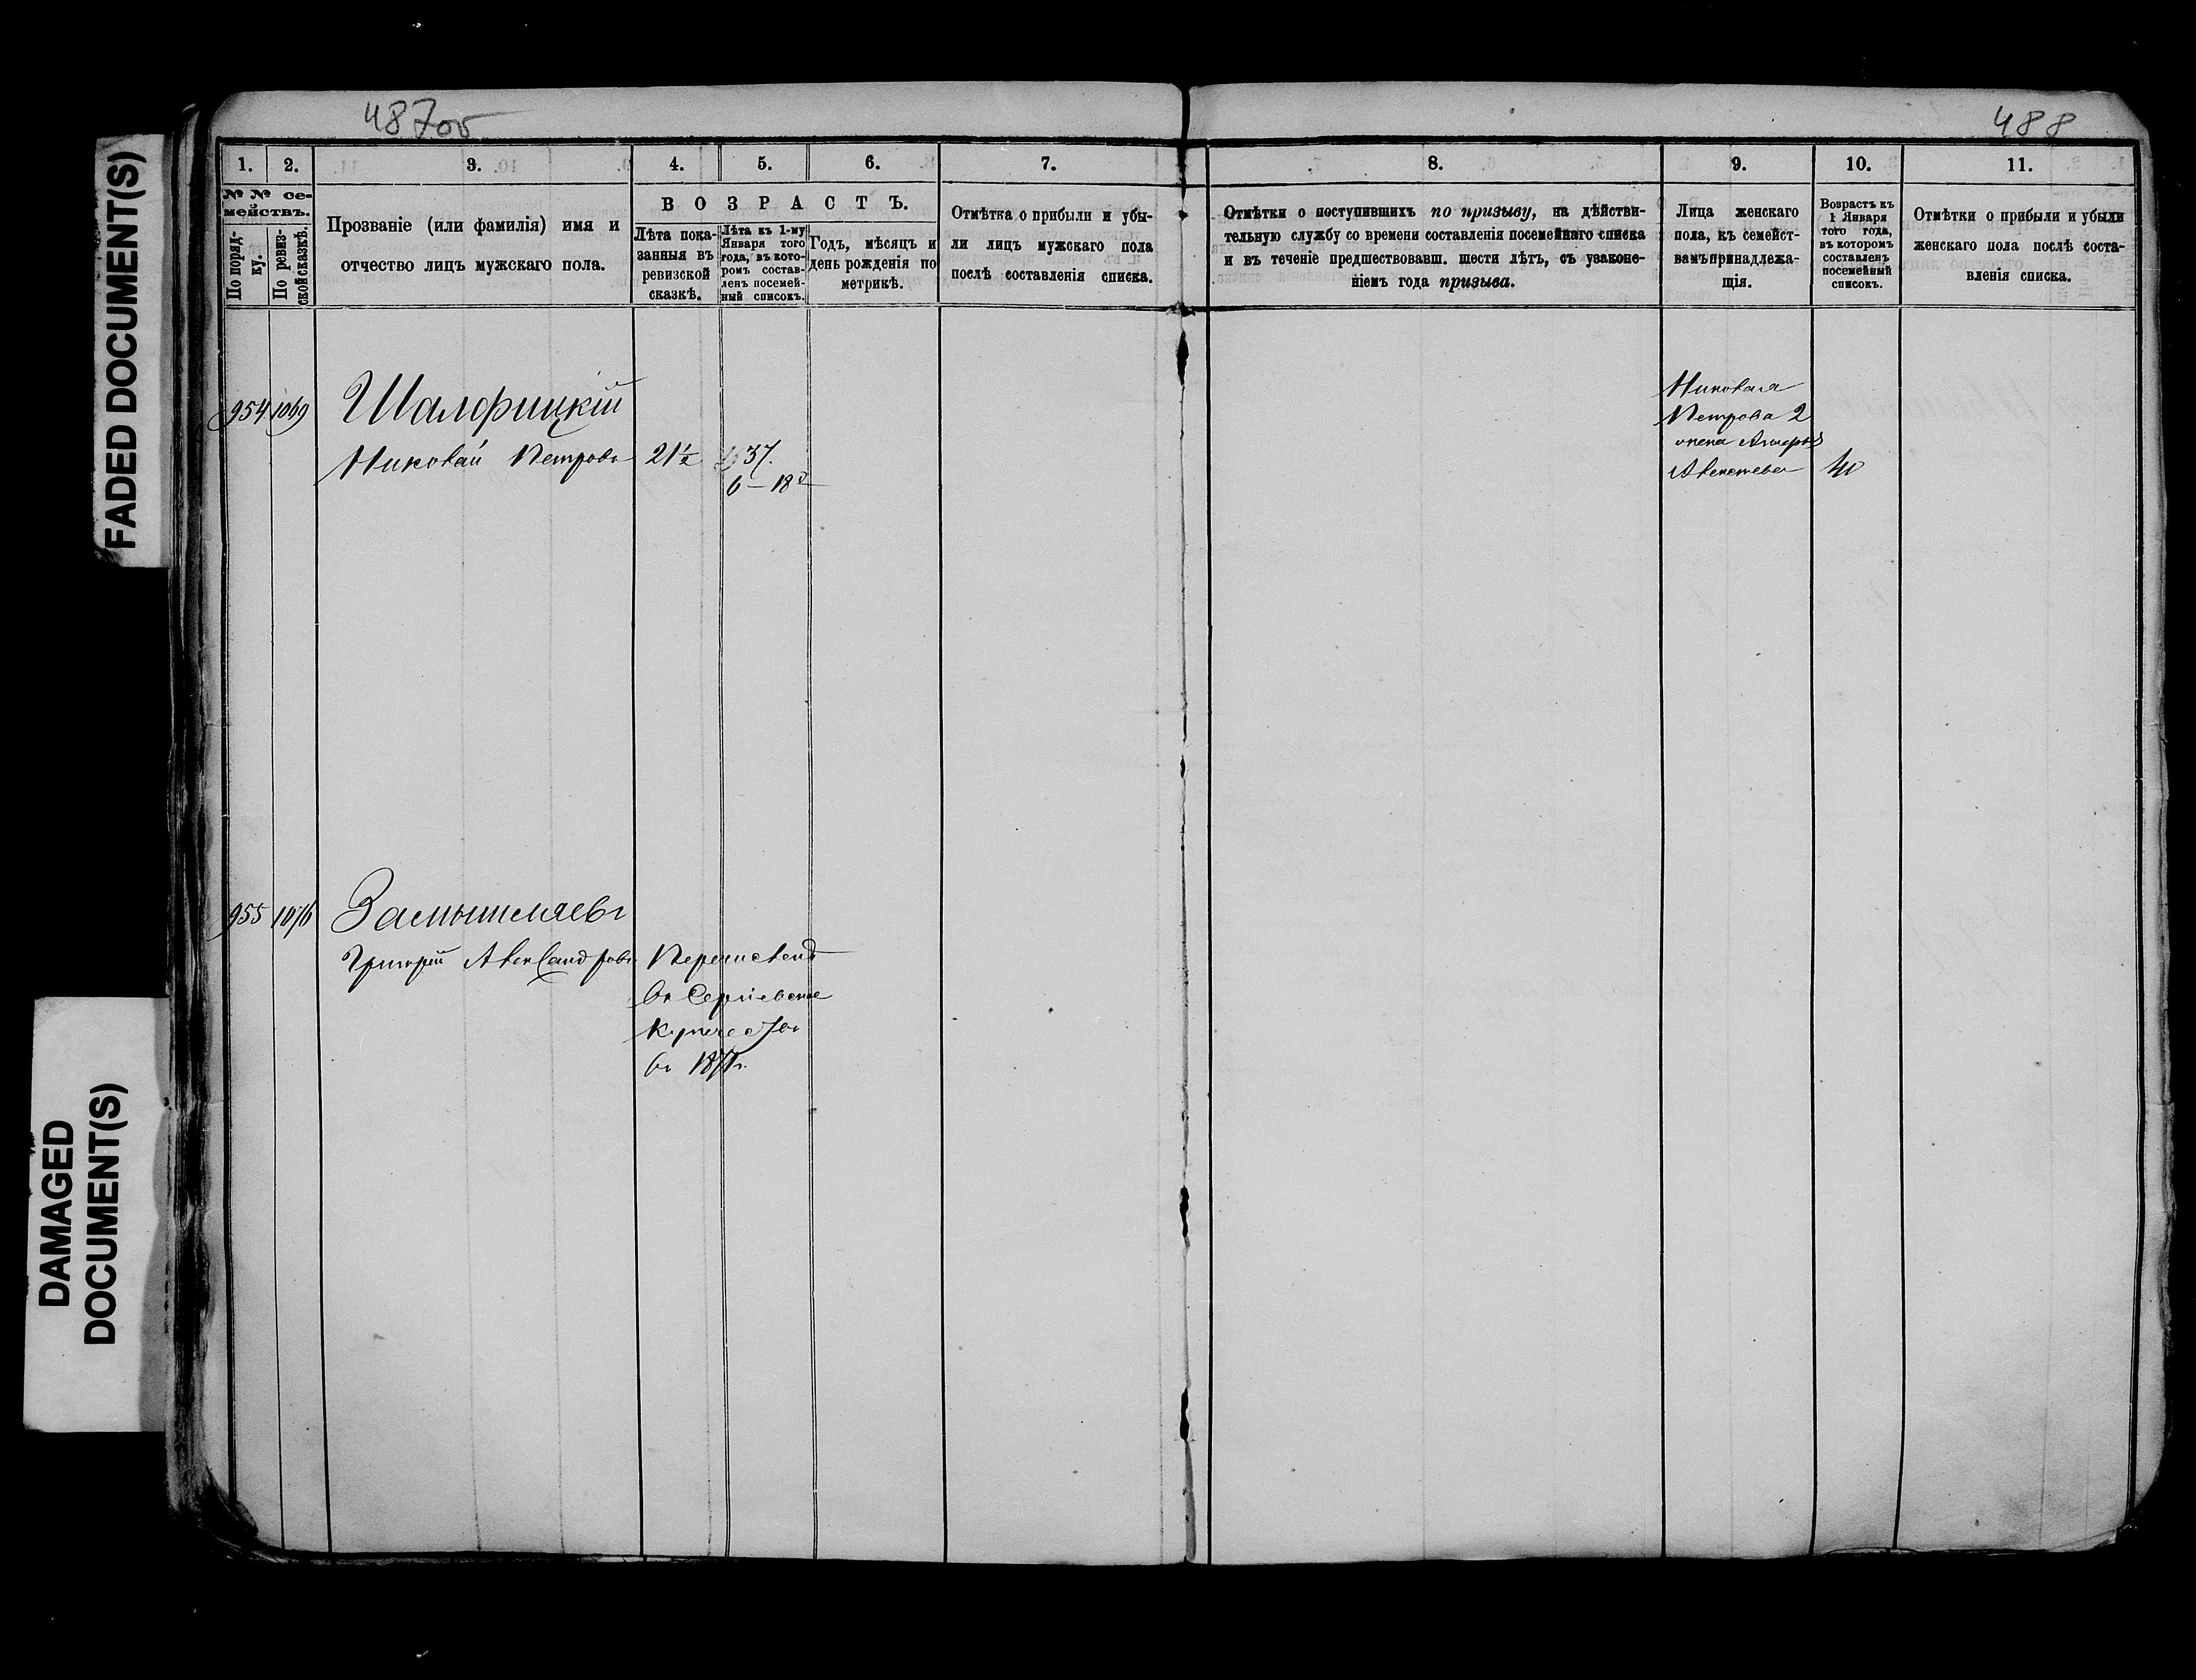 FADED DOCUMENT(S)
DAMAGED
DOCUMENT(S)
487об
488
1. 2. 3. 4. 5. 6. 7. 8. 9. 10. 11.
№ № се-
мействъ.
По поряд-
ку.
По ревиз-
ской сказкѣ.
Прозваніе (или фамилія) имя и
отчество лицъ мужскаго пола.
ВОЗРАСТЪ.
Лѣта пока-
занныя въ
ревизской
сказкѣ.
Лѣта къ 1-му
Января того
года, въ кото-
ромъ состав-
ленъ посемей-
ный списокъ.
Годъ, мѣсяцъ и
день рожденія по
метрикѣ.
Отмѣтка о прибыли и убы-
ли лицъ мужскаго пола
послѣ составленія списка.
Отмѣтки о поступившихъ по призыву, на дѣйстви-
тельную службу со времени составленія посемейнаго списка
и въ теченіе предшествовавш. шести лѣтъ, съ узаконе-
ніемъ года призыва.
Лица женскаго
пола, къ семейст-
вамъ принадлежа-
щія.
Возрастъ къ
1 Января
того года,
въ которомъ
составленъ
посемейный
списокъ.
Отмѣтки о прибыли и убыли
женскаго пола послѣ соста-
вленія списка.
954 1069 Шалфицкій
Николай Петровъ 21½ 37.
6–18
Николая
Петрова 2
жена
Алексѣева 40
955 1076 Замышляевъ
Григорій Александровъ Перечисленъ
въ Сергіевское
Купечество
въ 1871г.